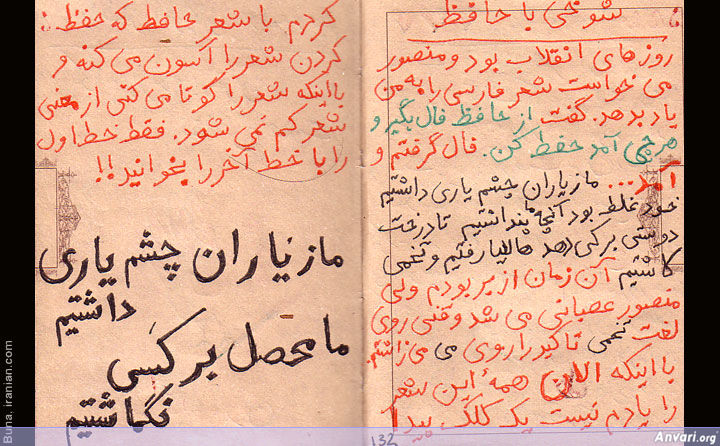 شوخی با حافظ
روزهای انقلاب بود و منصور
می خواست شعر فارسی را به من
یاد بدهد. گفت از حافظ فال بگیر و
هرچی آمد حفظ کن. فال گرفتم و
آمد... ما ز یاران چشم یاری داشتیم
خود غلط بود آنچه ما پنداشتیم تا درخت
دوستی بر کی دهد هالیا رفتیم و تخمی
کاشتیم آن زمان از بر بودم ولی
منصور عصبانی می شد وقتی روی
لغت تخمی تاکید را روی می می زاشتم.
با اینکه الان همهٔ این شعر
را یادم نیست یک کلک پیدا
132
کردم با شعر حافظ که حفظ
کردن شعر را آسون می کنه و
با اینکه شعر را کوتا می کنی از معنی
شعر کم نمی شود. فقط خط اول
را با خط آخر را بخوانید!!
ما ز یاران چشم یاری
داشتیم
ما محصل بر کسی
نگماشتیم
Buna, iranian.com
Anvari.org